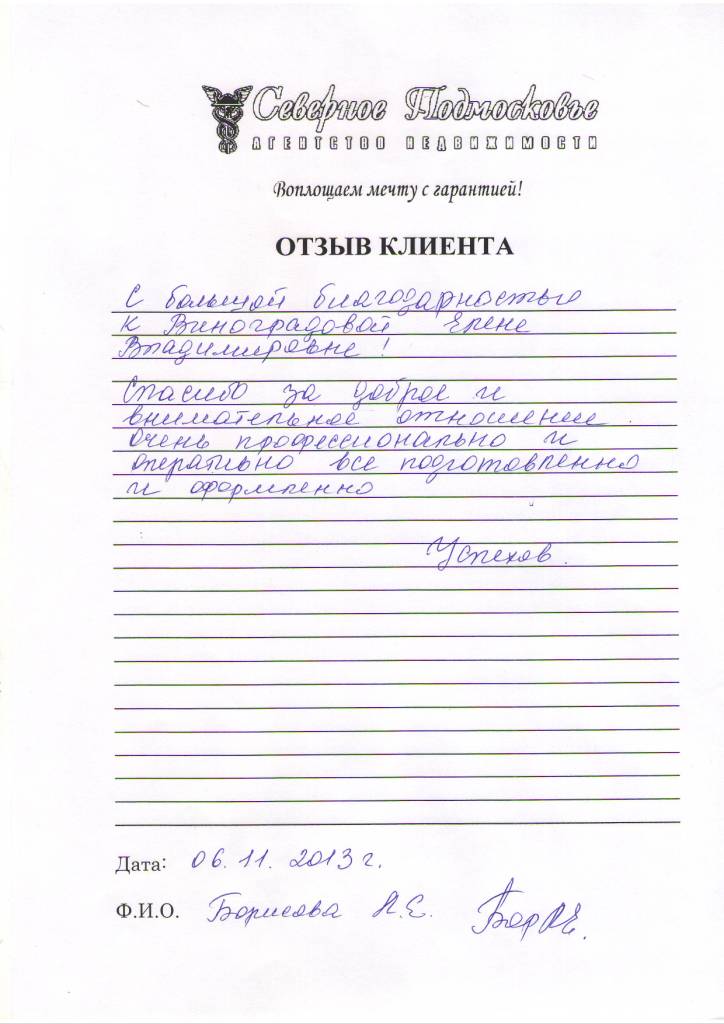 Северное Подмосковье
АГЕНТСТВО НЕДВИЖИМОСТИ
Воплощаем мечту с гарантией!
ОТЗЫВ КЛИЕНТА
С большой благодарностью
к Виноградовой Елене
Владимировне!
Спасибо за доброе и
внимательное отношение.
Очень профессионально и
оперативно все подготовленно
и оформленно
Успехов.
Дата: 06.11.2013 г.
Ф.И.О. Борисова Н.Е.